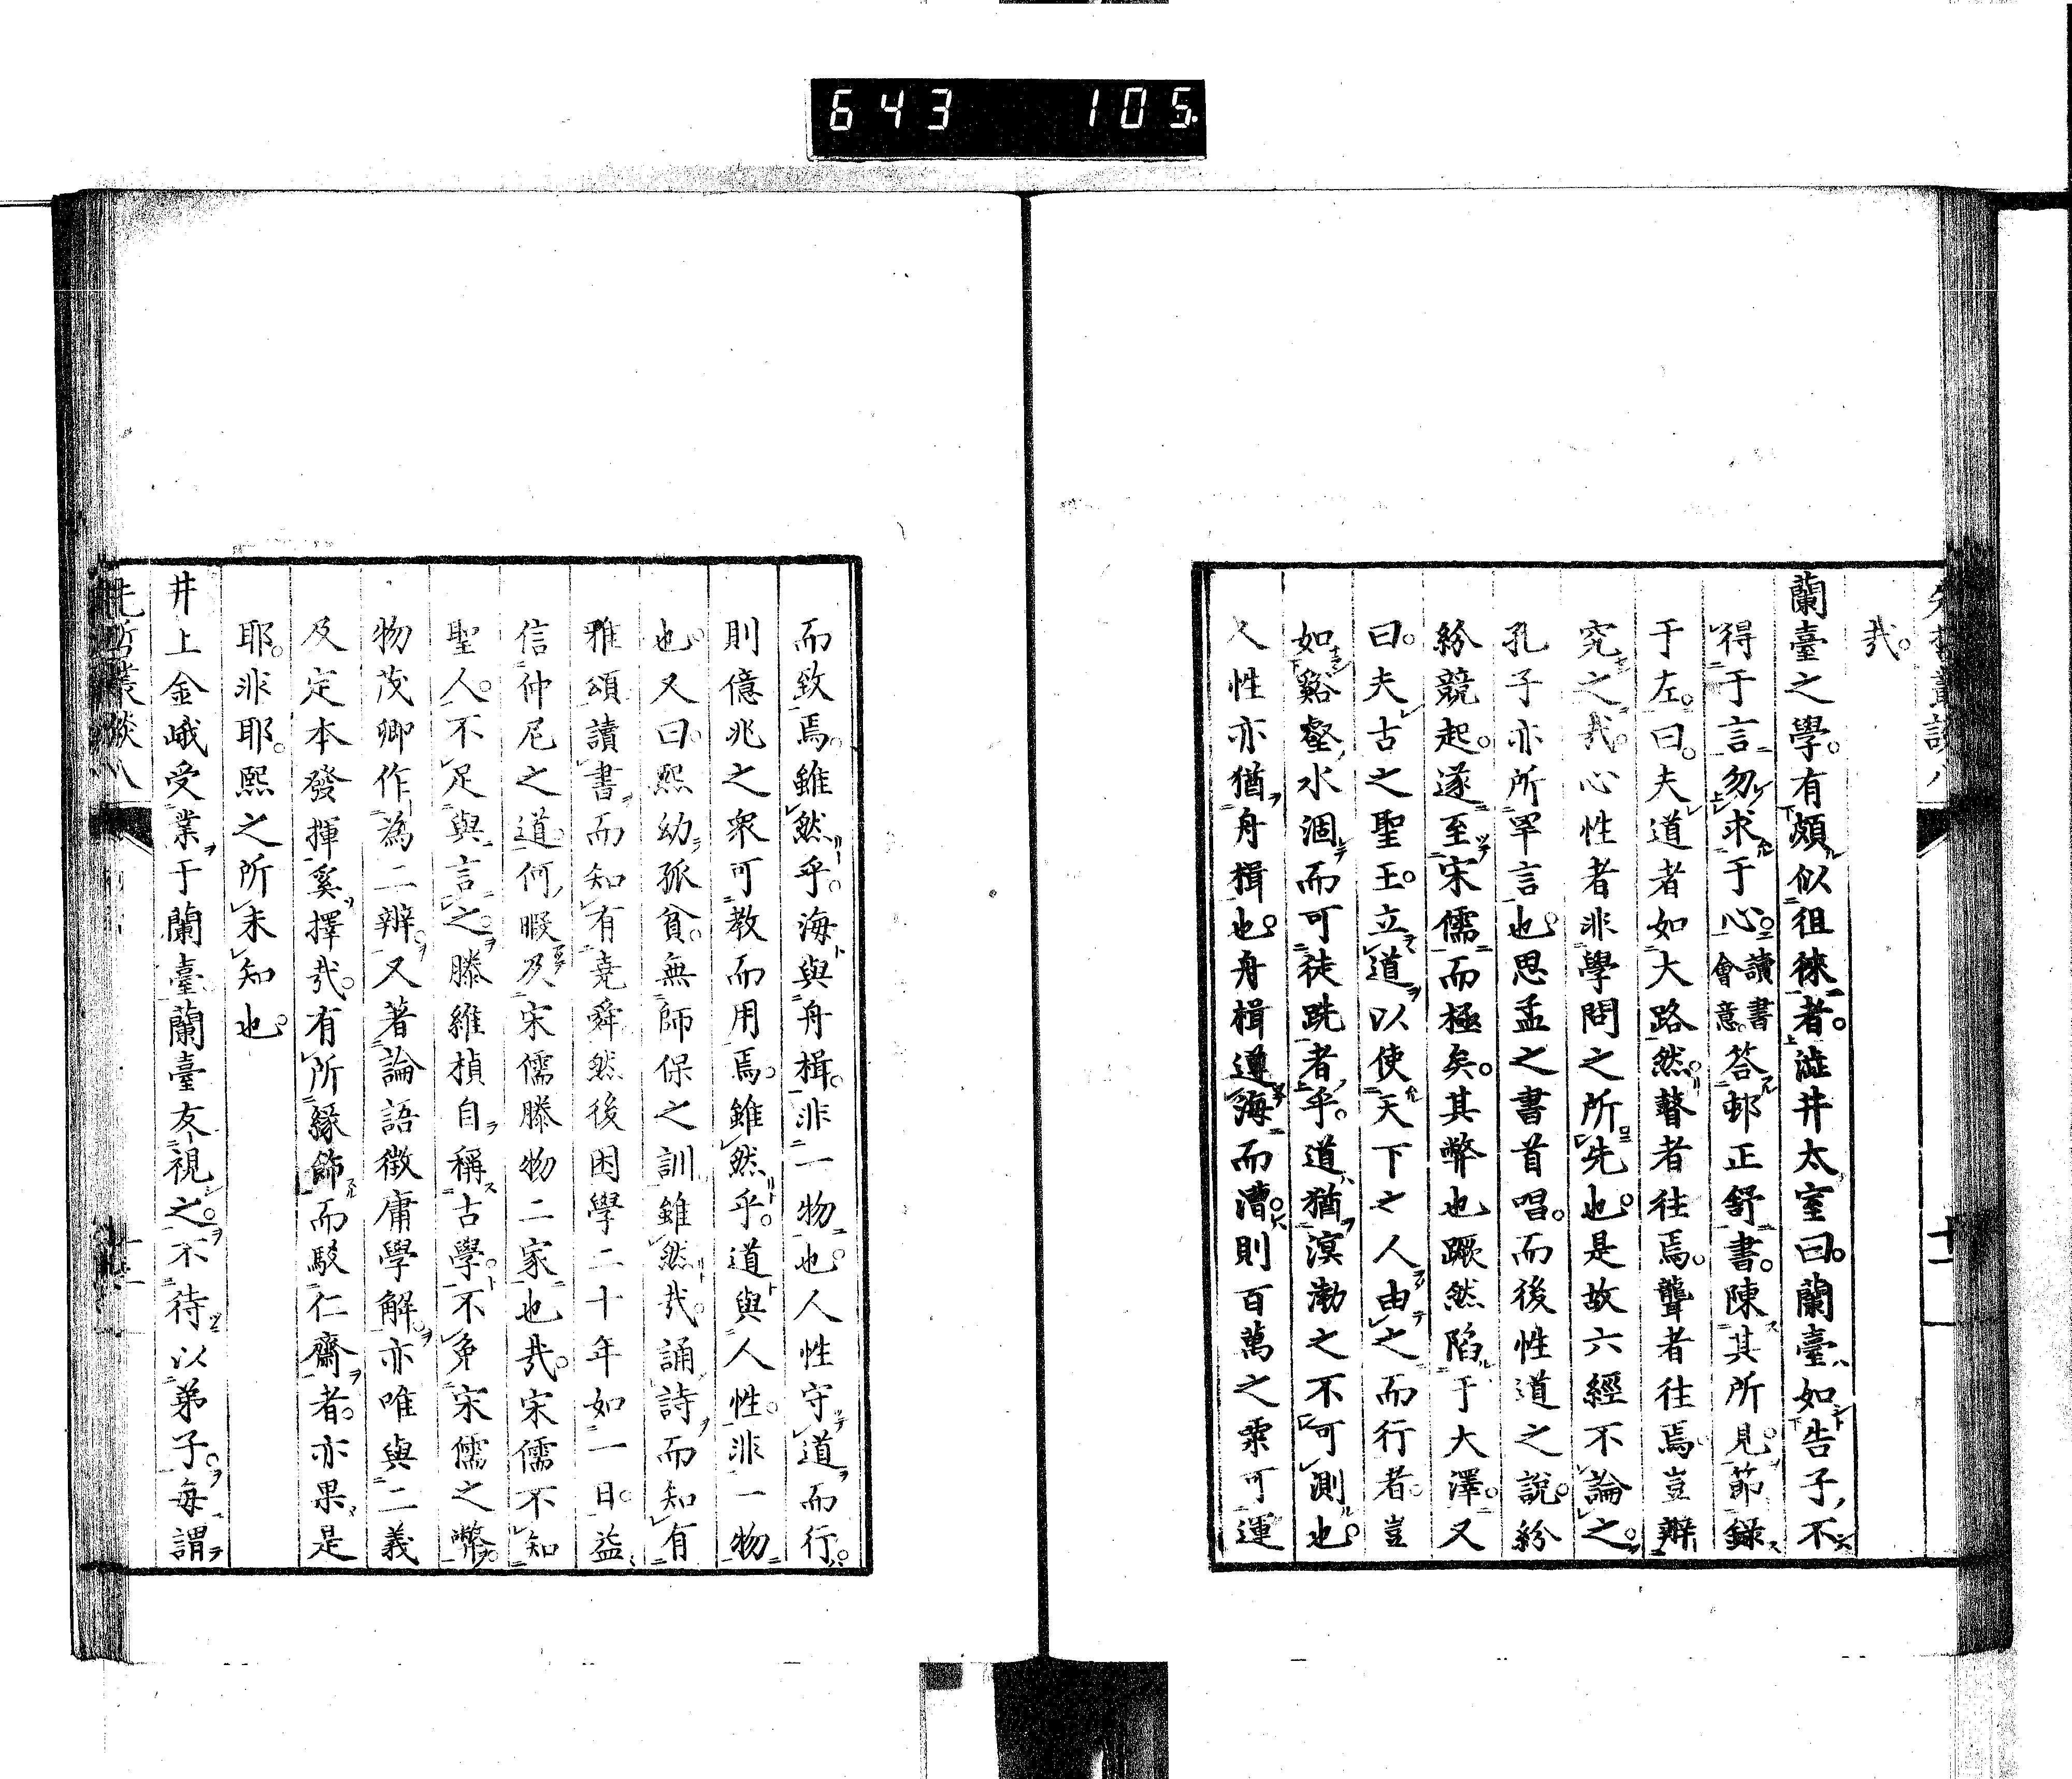 643 105
哉。
蘭臺之學。有頗似徂徠者。澁井太室曰。蘭臺如告子。不
得于言。勿求于心。讀書會意。答邨正舒書。陳其所見。節錄
于左。曰。夫道者如大路然。瞽者往焉。聾者往焉。豈辨
究之哉。心性者非學問之所先也。是故六經不論之。
孔子亦所罕言也。思孟之書首唱。而後性道之說。紛
紛競起。遂至宋儒而極矣。其弊也蹶然陷于大澤。又
曰。夫古之聖王。立道以使天下之人由之而行者。豈
如谿壑水涸而可徒跣者乎。道猶溟渤之不可測也。
人性亦猶舟楫也。舟楫遵海而漕。則百萬之粟可運
而致焉。雖然乎。海與舟楫。非一物也。人性守道而行。
則億兆之衆可教而用焉。雖然乎。道與人性。非一物
也。又曰。熙幼孤貧。無師保之訓。雖然哉。誦詩而知有
雅頌。讀書而知有堯舜。然後困學二十年如一日。益
信仲尼之道。何暇及宋儒滕物二家也哉。宋儒不知
聖人。不足與言之。滕維楨自稱古學。不免宋儒之弊。
物茂卿作為二辨。又著論語徵庸學解。亦唯與二義
及定本發揮奚擇哉。有所緣飾而駁仁齋者。亦果是
耶。非耶。熙之所未知也。
井上金峨受業于蘭臺。蘭臺友視之。不待以弟子。每謂
先哲叢談八